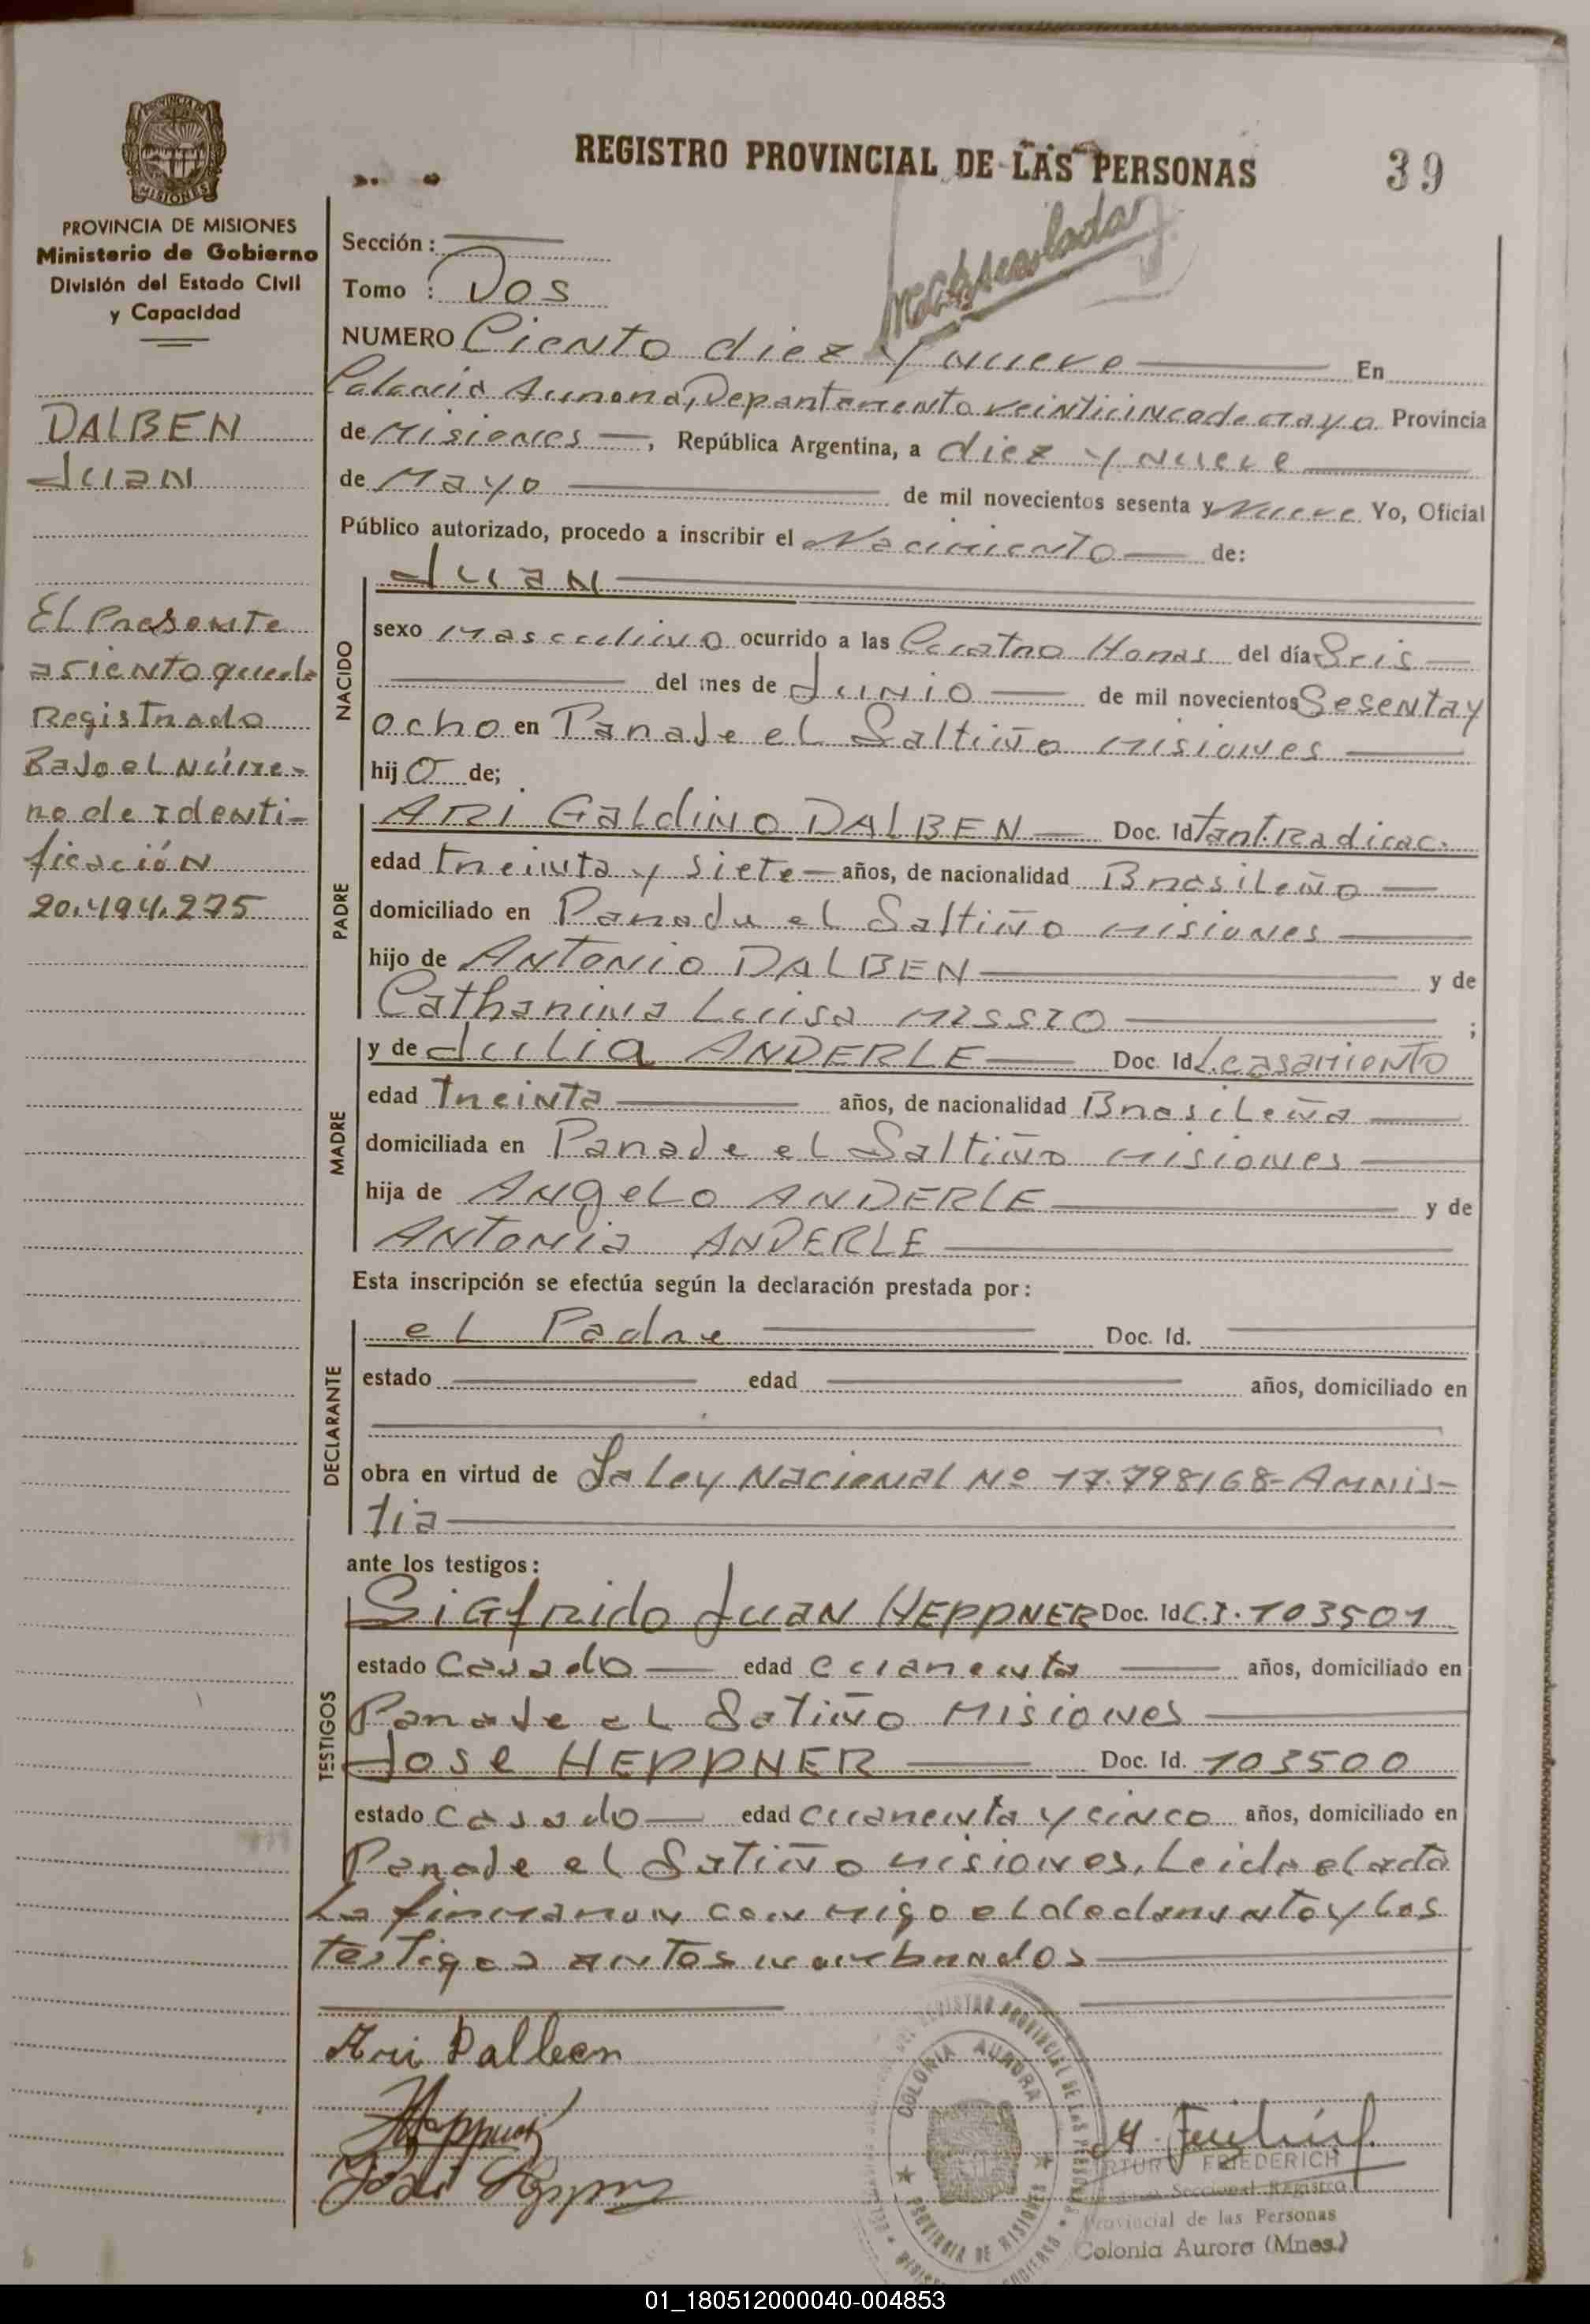 REGISTRO PROVINCIAL DE LAS PERSONAS
39
PROVINCIA DE MISIONES
Ministerio de Gobierno
División del Estado Civil
y Capacidad
DALBEN
Juan
El Presente
asiento queda
Registrado
Bajo el Núme-
ro de Identi-
ficación
20.494.275
Sección:
Tomo : Dos
NUMERO Ciento diez y nueve En
Colonia Aurora, Departamento veinticinco de mayo Provincia
de Misiones, República Argentina, a diez y nueve
de Mayo de mil novecientos sesenta y Nueve Yo, Oficial
Público autorizado, procedo a inscribir el Nacimiento de:
NACIDO
Juan
sexo Masculino ocurrido a las Cuatro Horas del día Seis
del mes de Junio de mil novecientos Sesenta y
ocho en Paraje el Saltiño Misiones
hijo de;
PADRE
ARI Galdino DALBEN Doc. Id Tant. Radicac.
edad treinta y siete años, de nacionalidad Brasileño
domiciliado en Paraje el Saltiño Misiones
hijo de Antonio DALBEN y de
Catharina Luisa MISSIO ;
MADRE
y de Julia ANDERLE Doc. Id L. casamiento
edad Treinta años, de nacionalidad Brasileña
domiciliada en Paraje el Saltiño Misiones
hija de Angelo ANDERLE y de
Antonia ANDERLE
Esta inscripción se efectúa según la declaración prestada por:
DECLARANTE
el Padre Doc. Id.
estado edad años, domiciliado en
obra en virtud de La Ley Nacional Nº 17.798/68-Amnis-
tia
ante los testigos:
TESTIGOS
Sigfrido Juan HEPPNER Doc. Id C.I. 103501
estado Casado edad cuarenta años, domiciliado en
Paraje el Satiño Misiones
Jose HEPPNER Doc. Id. 103500
estado Casado edad cuarenta y cinco años, domiciliado en
Paraje el Satiño Misiones, Leida el acta
La firmaron conmigo el declarante y los
testigos antes nombrados
Ari Dalben
Heppner
COLONIA AURORA
PROVINCIA DE MISIONES
ARTURO FRIEDERICH
Seccional Registro
Provincial de las Personas
Colonia Aurora (Mnes.)
01_180512000040-004853